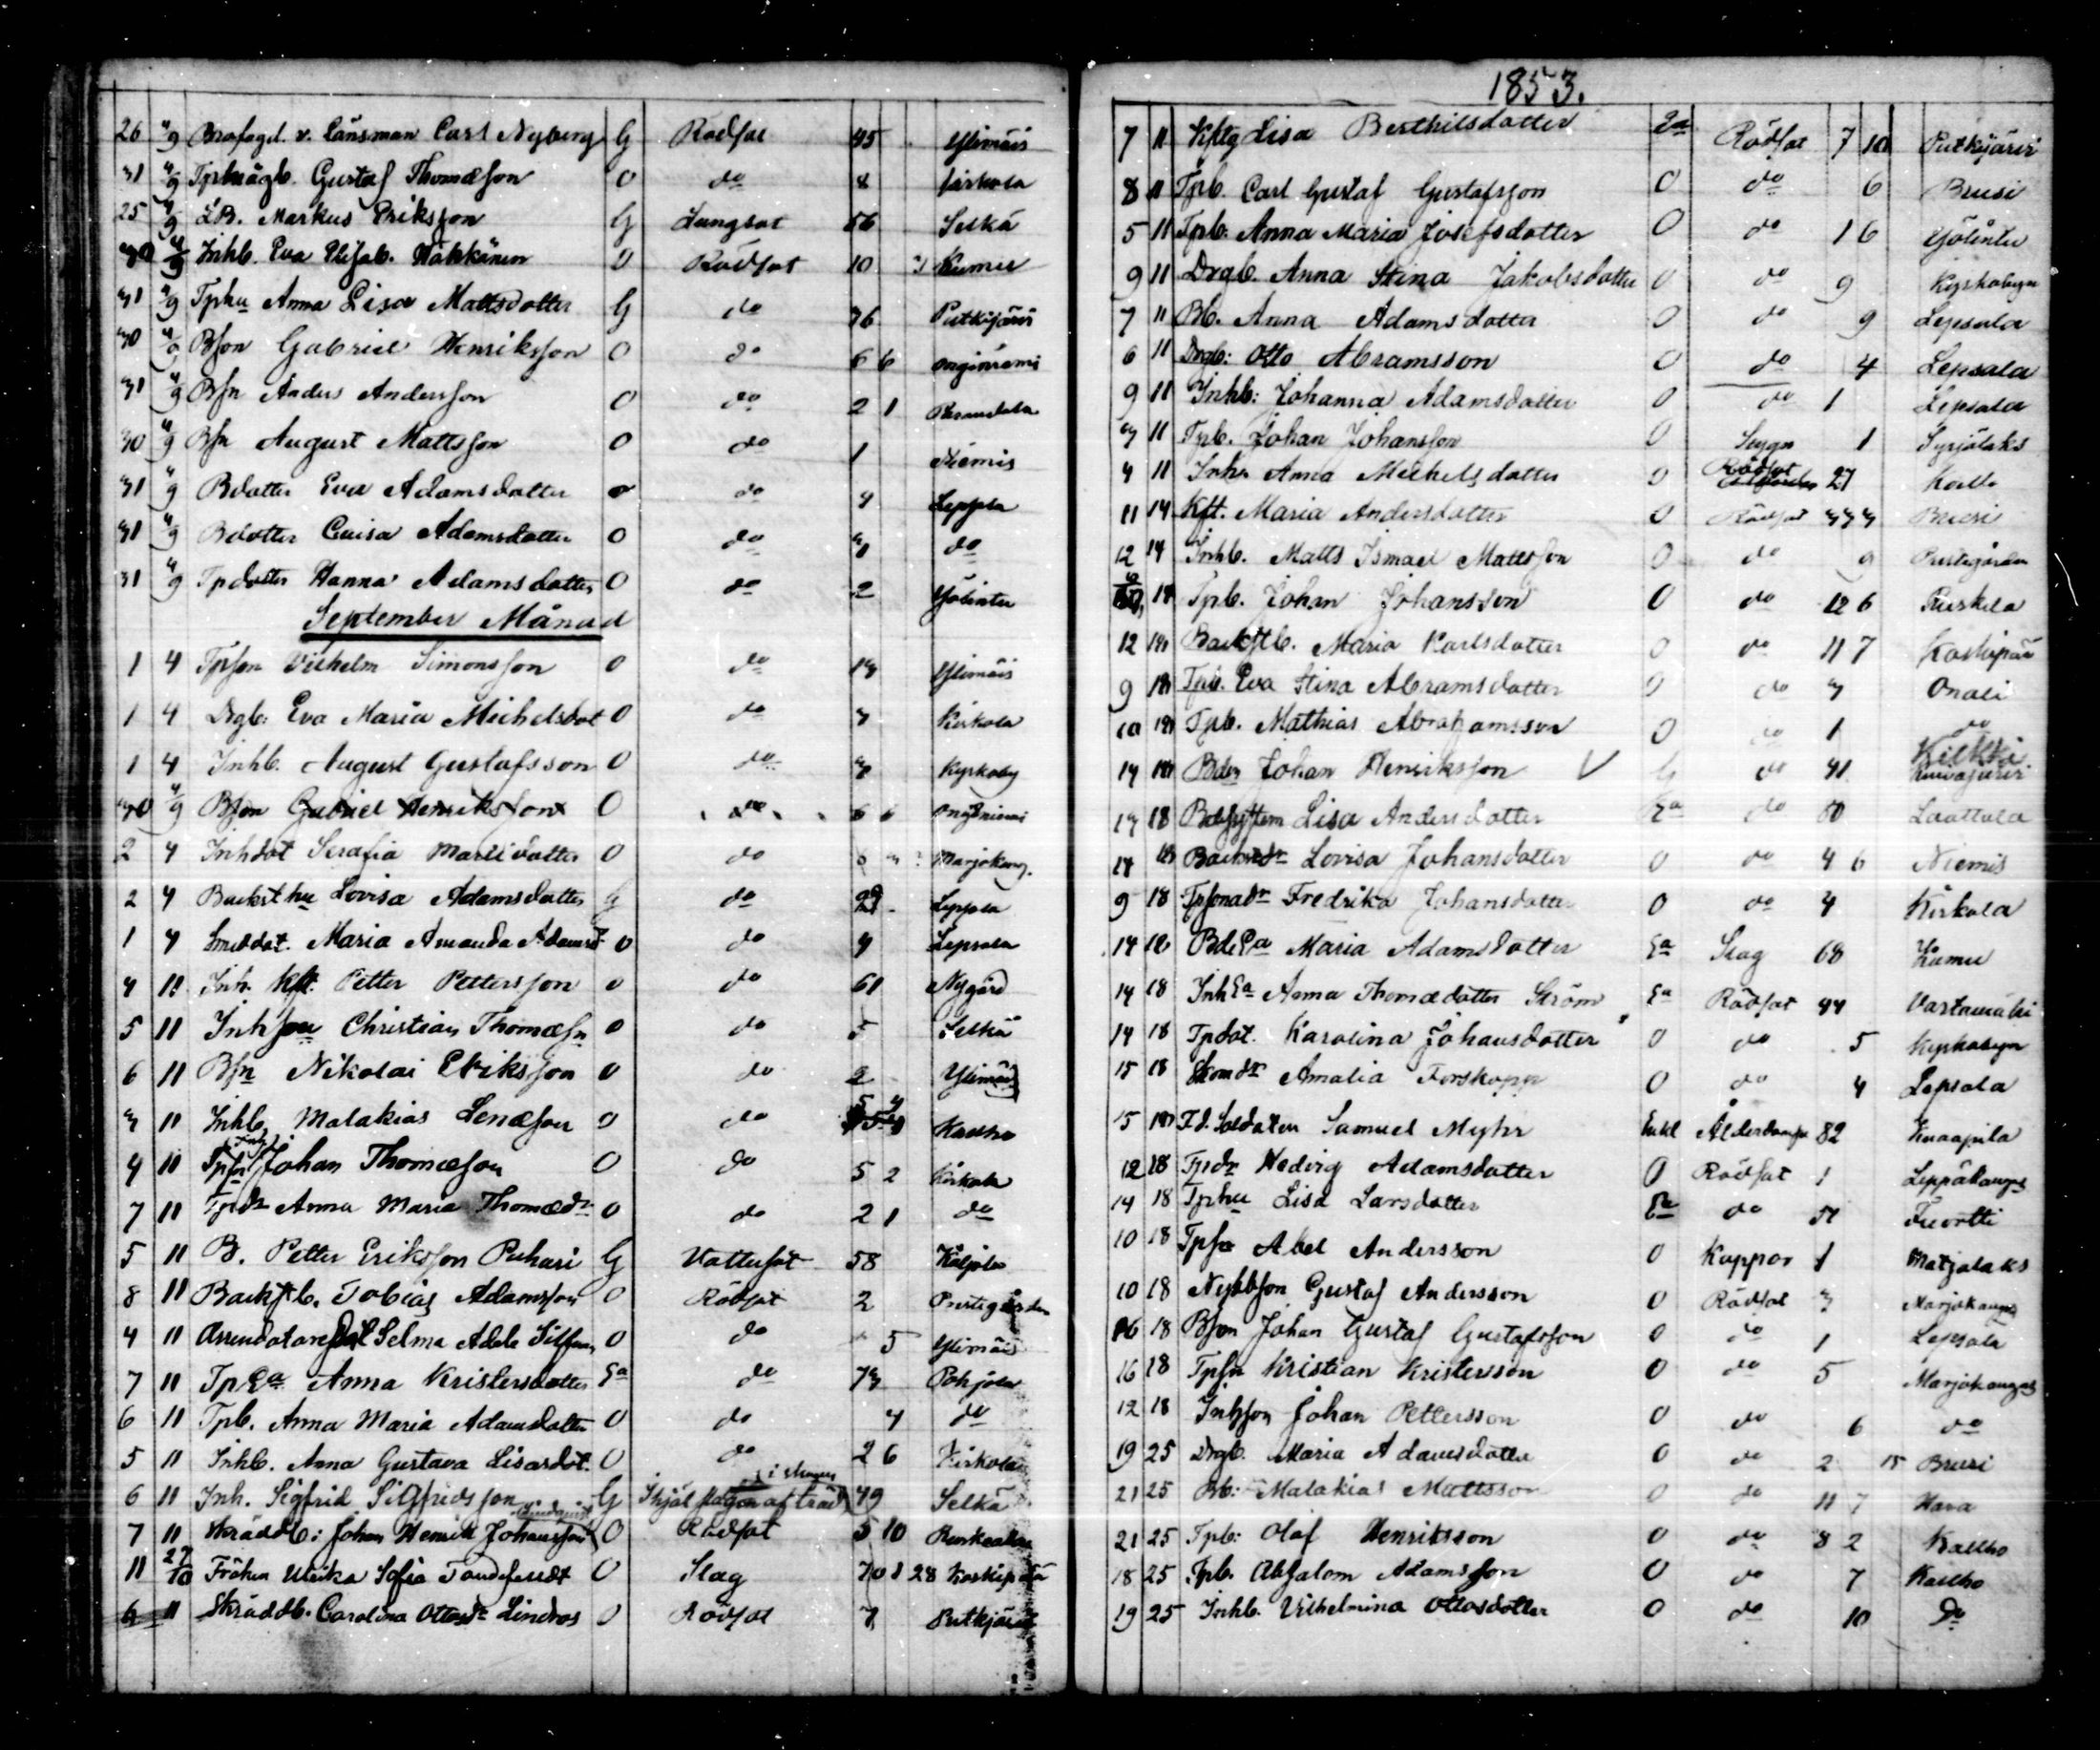 26 4/9 Brofogd. v. Länsman Carl Nyberg G Rödsot 45 Ylimäis
31 4/9 Gustaf Thomæson O do
25 4/9 LB. Markus Eriksson G Lungsot 56 Selkä
30 4/9 Inhb. Eva Elisab. O Rödsot 10 Kumu
31 4/9 Tphu Anna Lisa Mattsdotter G do 36 Putkijärvi
30 4/9 Bson Gabriel Henriksson O do 6 6
31 4/9 Bsn Anders Andersson O do 2 1
30 4/9 Bsn August Mattsson O do 1 Niemis
31 4/9 Bdotter Eva Adamsdotter O do 4 Leppla
31 4/9 Bdotter Caisa Adamsdotter O do do
31 4/9 Tpdotter Hanna Adamsdotter O do 2 Yölintu
September Månad
1 4 Tpson Vilhelm Simonsson O do 13 Ylimäis
1 4 Drgb. Eva Maria Michelsdot O do 3 Kirkola
1 4 Inhb. August Gustafsson O do 3 Kyrkoby
30 4/9 Bson Gabriel Henriksson O do 6 6
2 4 Inhdot Serafia Mattsdotter O do Marjokang.
2 4 Backsthu Lovisa Adamsdotter G do Leppla
1 4 Smeddot. Maria Amanda Adamsd O do 4 Lepsala
4 11 Inh. Kft. Petter Pettersson O do 61 Nygård
5 11 Inhson Christian Thomæsn O do 5 Selkä
6 11 Bsn Nikolai Eriksson O do 2 Ylimäis
3 11 Inhb. Malakias Lenæson O do Kallho
4 11 Tpsn Johan Thomæson O do 5 2 Kirkola
7 11 Tpdr Anna Maria Thomædr O do 2 1 do
5 11 B. Petter Eriksson Puhari G Vattusot 58
8 11 Backstb. Tobias Adamsson O Rödsot 2 Prestgården
4 11 Arrendatoredot Selma Adele O do 5 Ylimäis
7 11 TpEa Anna Kristersdotter Ea do 73 Pohjola
6 11 Tpb. Anna Maria Adamsdotter O do 4 do
5 11 Inhb. Anna Gustava Lisasdot. O do 2 6 Kirkola
6 11 Inh. Sigfrid Sigfridsson G Ihjälslagen af träd i skogen 49 Selkä
7 11 Skräddb: Johan Henrik Johansson O Rödsot 5 10
11 27/10 Fröken Ulrika Sofia Tandefeldt O Slag 70 1 28 Koskipää
6 11 Skräddb. Carolina Ottosdr Lindros O Rödsot 7 Putkijärvi
1853.
7 11 Kftg Lisa Berthilsdotter Ea Rödsot 7 10 Putkijärvi
8 11 Tpb. Carl Gustaf Gustafsson O do 6 Brusi
5 11 Tpb. Anna Maria Josefsdotter O do 1 6 Yölintu
9 11 Drgb. Anna Stina Jakobsdotter O do 9 Kyrkobyn
7 11 Bb. Anna Adamsdotter O do 9 Lepsala
6 11 Drgb: Otto Abramsson O do 4 Lepsala
9 11 Inhb: Johanna Adamsdotter O do 1 Lepsala
3 11 Tpb. Johan Johansson O 1 Syrjälaks
4 11 Inhr Anna Michelsdotter O Rödsot 27 Kallo
11 14 Kft. Maria Andersdotter O Rödsot Brusi
12 14 Inhb. Matts Ismael Mattsson O do 9 Prestegården
18 Tpb. Johan Johansson O do 12 6 Ruskela
12 18 Backstb. Maria Karlsdotter O do 11 7 Koskipää
9 18 Tpb. Eva Stina Abramsdotter O do 3 Onali
10 18 Tpb. Mathias Abrahamsson O do 1 do
14 18 Bden Johan Henriksson V G do 41 Kilkki
14 18 Lisa Andersdotter Ea do 80 Laattala
14 18 Backstdr Lovisa Johansdotter O do 4 6 Niemis
9 18 Tpsonadr Fredrika Johansdotter O do 4 Kirkola
14 18 BdeEa Maria Adamsdotter Ea Slag 68 Kumu
14 18 InhEa Anna Thomædotter Ström Ea Rödsot 44 Vartamäki
14 18 Tpdot. Karolina Johansdotter O do 5 Kyrkobyn
15 18 Skomdr Amalia Forskopp O do 4 Lepsala
15 18 F.d. Soldaten Samuel Myhr Enkl Ålderdomsv 82 Knaapila
12 18 Tpdr Hedvig Adamsdotter O Rödsot 1 Leppäkangas
14 18 Tphu Lisa Larsdotter Ea do 51 Tuortti
10 18 Tpsn Abel Andersson O Koppor 1 Matjalaks
10 18 Nybbson Gustaf Andersson O Rödsot 3 Marjokangas
16 18 Bson Johan Gustaf Gustafsson O do 1 Lepsala
16 18 Tpsn Kristian Kristersson O do 5 Marjokangas
12 18 Inhson Johan Pettersson O do 6 do
19 25 Drgb. Maria Adamsdotter O do 2 15 Brusi
21 25 Bb: Malakias Mattsson O do 11 7 Hava
21 25 Tpb: Olof Henriksson O do 8 2 Kallho
18 25 Tpb. Absalom Adamsson O do 7 Kallho
19 25 Inhb. Vilhelmina Ottosdotter O do 10 Do